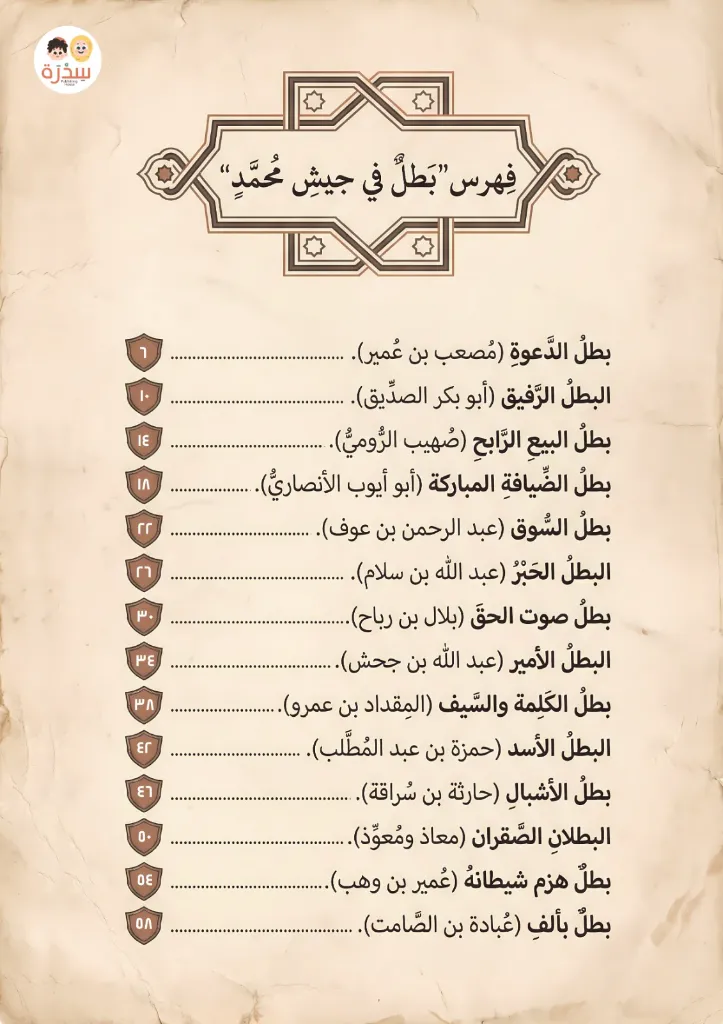 سِدْرَة
فِهرس”بَطلٌ في جيشِ مُحمَّدٍ“
بطلُ الدَّعوةِ (مُصعب بن عُمير). ........ ٦
البطلُ الرَّفيق (أبو بكر الصدِّيق). ........ ١٠
بطلُ البيعِ الرَّابحِ (صُهيب الرُّوميُّ). ........ ١٤
بطلُ الضِّيافةِ المباركة (أبو أيوب الأنصاريُّ). ........ ١٨
بطلُ السُّوق (عبد الرحمن بن عوف). ........ ٢٢
البطلُ الحَبْرُ (عبد الله بن سلام). ........ ٢٦
بطلُ صوت الحقَ (بلال بن رباح). ........ ٣٠
البطلُ الأمير (عبد الله بن جحش). ........ ٣٤
بطلُ الكَلِمة والسَّيف (المِقداد بن عمرو). ........ ٣٨
البطلُ الأسد (حمزة بن عبد المُطَّلب). ........ ٤٢
بطلُ الأشبالِ (حارثة بن سُراقة). ........ ٤٦
البطلانِ الصَّقران (معاذ ومُعوِّذ). ........ ٥٠
بطلٌ هزم شيطانهُ (عُمير بن وهب). ........ ٥٤
بطلٌ بألفِ (عُبادة بن الصَّامت). ........ ٥٨